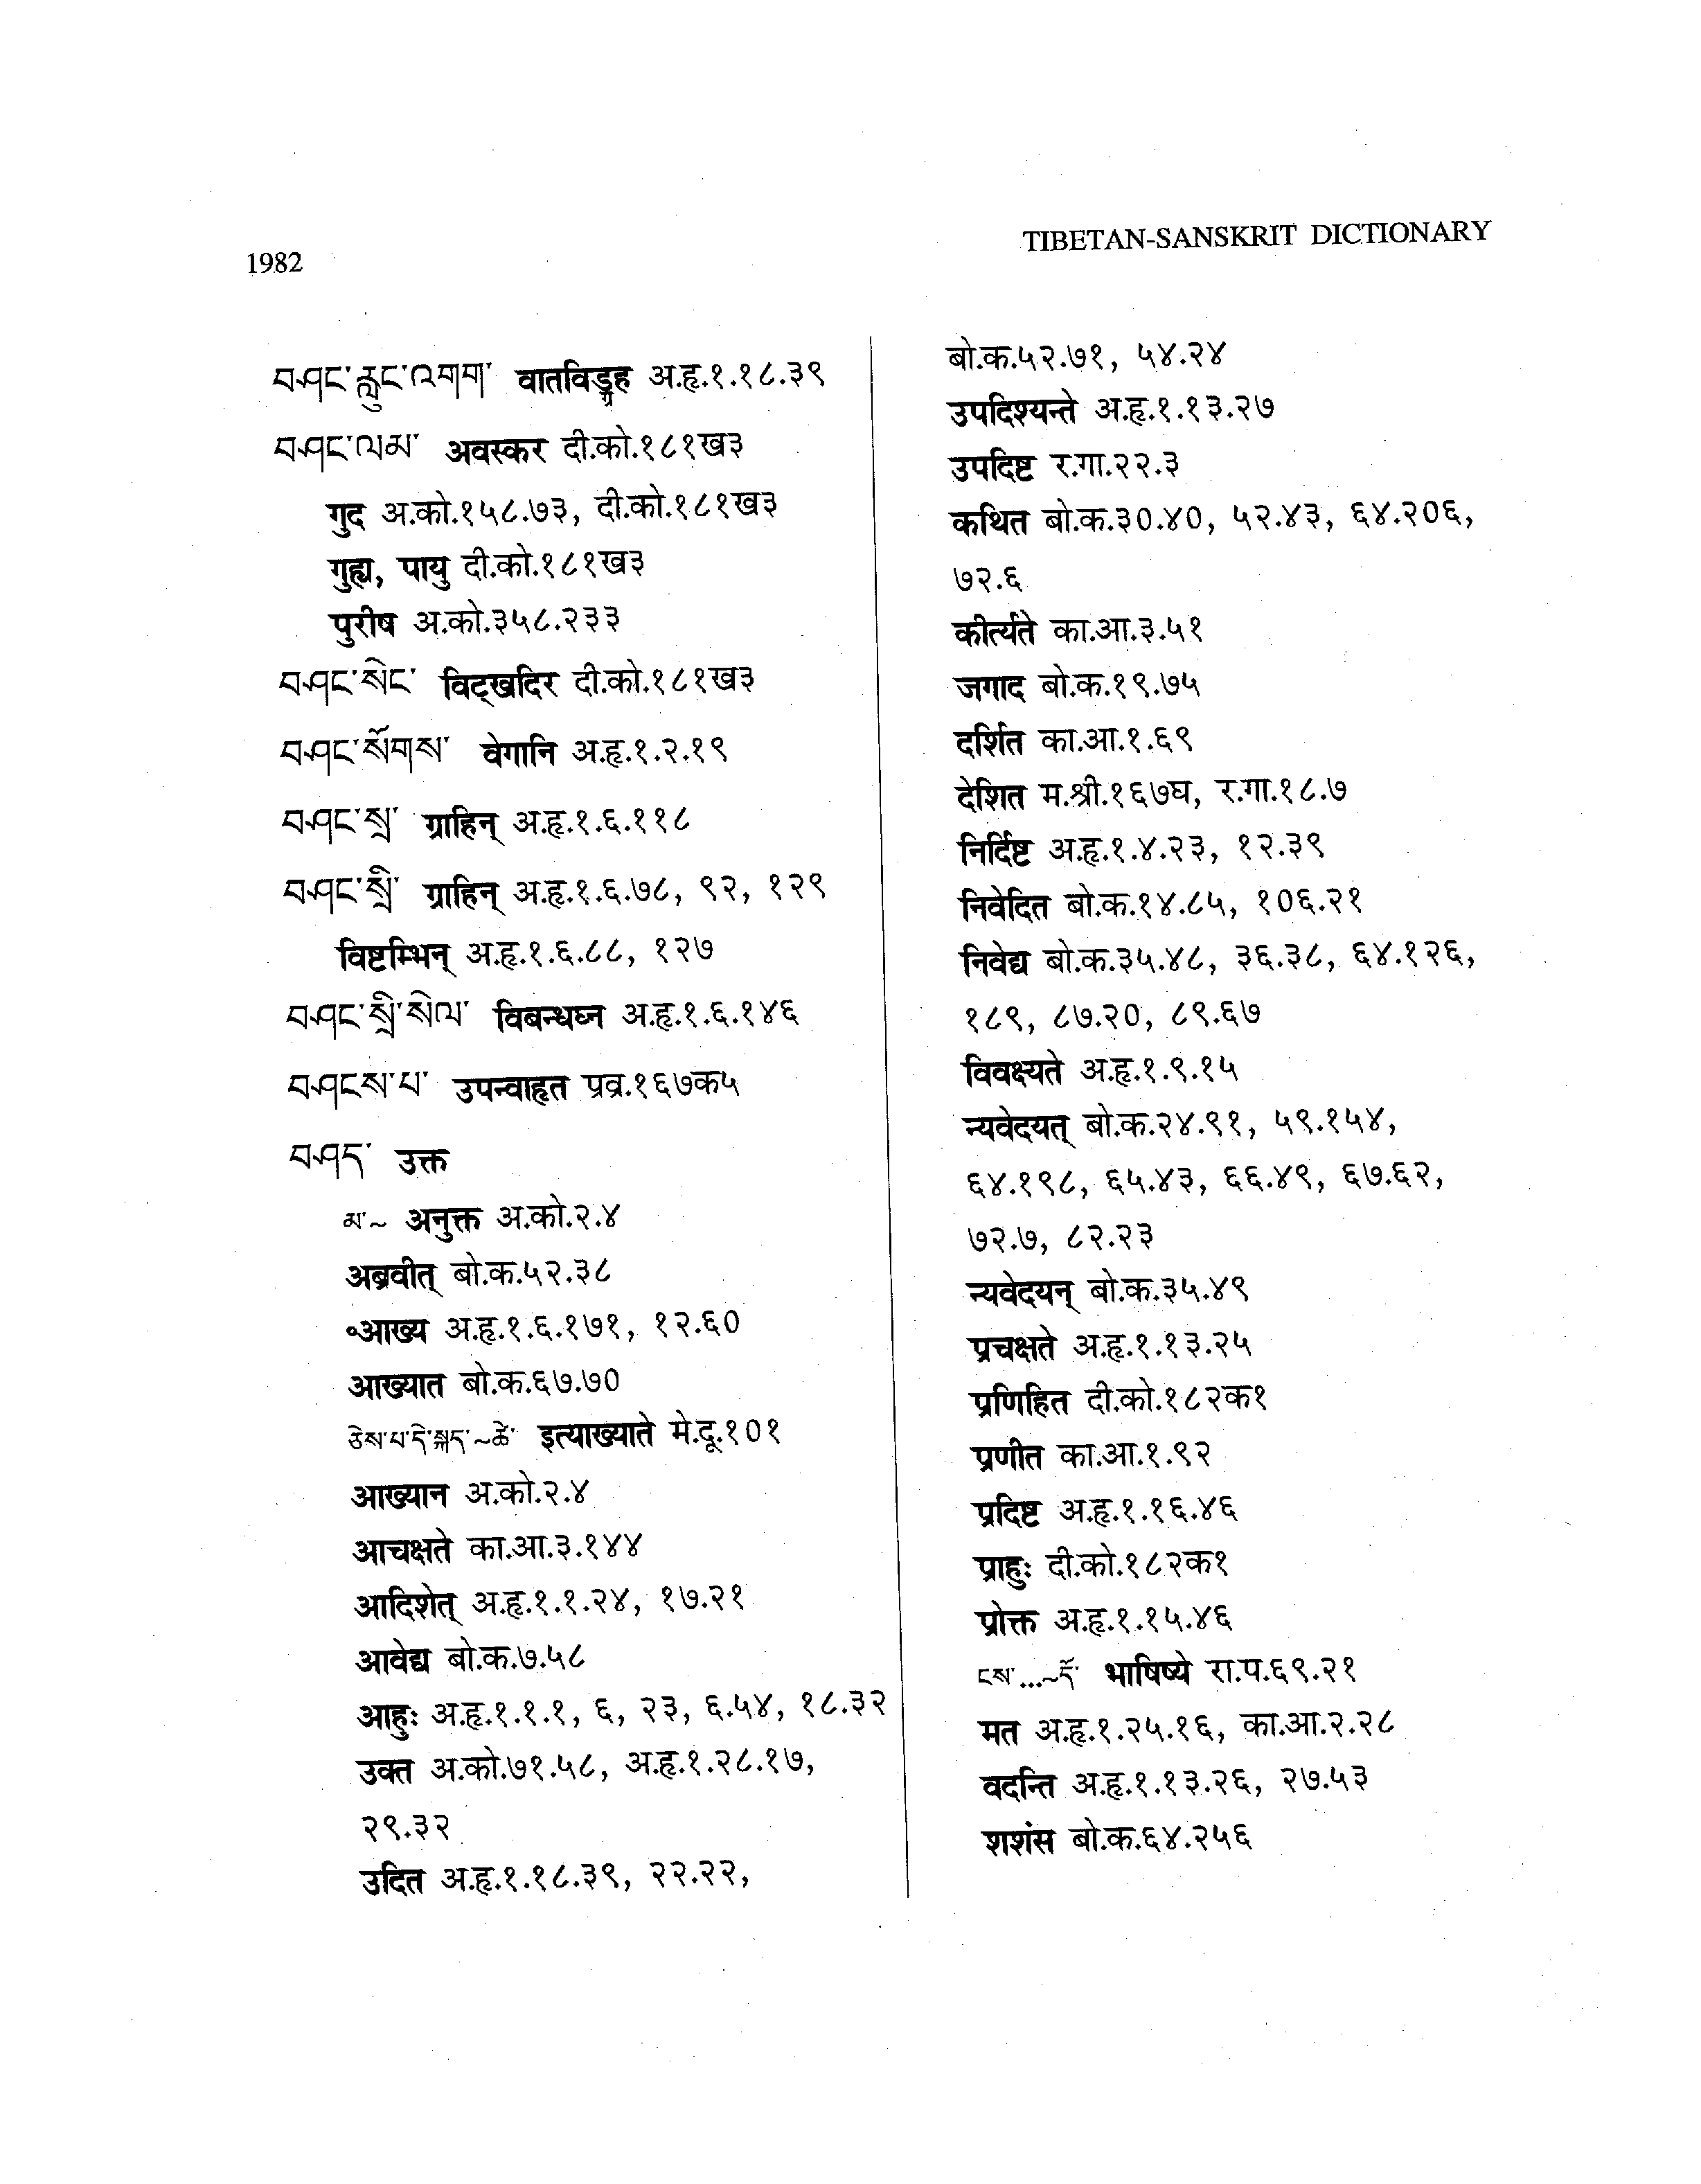 1982
TIBETAN-SANSKRIT DICTIONARY
བཤང་རླུང་འགག་ वातविड्ग्रह अ.हृ.१.१८.३९
བཤང་ལམ་ अवस्कर दी.को.१८१ख३
गुद अ.को.१५८.७३, दी.को.१८१ख३
गुह्य, पायु दी.को.१८१ख३
पुरीष अ.को.३५८.२३३
བཤང་སེང་ विट्खदिर दी.को.१८१ख३
བཤང་སོགས་ वेगानि अ.हृ.१.२.१९
བཤང་སྲ་ ग्राहिन् अ.हृ.१.६.११८
བཤང་སྲི་ ग्राहिन् अ.हृ.१.६.७८, ९२, १२९
विष्टम्भिन् अ.हृ.१.६.८८, १२७
བཤང་སྲི་སེལ་ विबन्धघ्न अ.हृ.१.६.१४६
བཤངས་པ་ उपन्वाहृत प्रव्र.१६७क५
བཤད་ उक्त
མ་~ अनुक्त अ.को.२.४
अब्रवीत् बो.क.५२.३८
०आख्य अ.हृ.१.६.१७१, १२.६०
आख्यात बो.क.६७.७०
ཅེས་པ་དེ་སྐད་~ཚེ་ इत्याख्याते मे.दू.१०१
आख्यान अ.को.२.४
आचक्षते का.आ.३.१४४
आदिशेत् अ.हृ.१.१.२४, १७.२१
आवेद्य बो.क.७.५८
आहुः अ.हृ.१.१.१, ६, २३, ६.५४, १८.३२
उक्त अ.को.७१.५८, अ.हृ.१.२८.१७,
२९.३२
उदित अ.हृ.१.१८.३९, २२.२२,
बो.क.५२.७१, ५४.२४
उपदिश्यन्ते अ.हृ.१.१३.२७
उपदिष्ट र.गा.२२.३
कथित बो.क.३०.४०, ५२.४३, ६४.२०६,
७२.६
कीर्त्यते का.आ.३.५१
जगाद बो.क.१९.७५
दर्शित का.आ.१.६९
देशित म.श्री.१६७घ, र.गा.१८.७
निर्दिष्ट अ.हृ.१.४.२३, १२.३९
निवेदित बो.क.१४.८५, १०६.२१
निवेद्य बो.क.३५.४८, ३६.३८, ६४.१२६,
१८९, ८७.२०, ८९.६७
विवक्ष्यते अ.हृ.१.९.१५
न्यवेदयत् बो.क.२४.९१, ५९.१५४,
६४.१९८, ६५.४३, ६६.४९, ६७.६२,
७२.७, ८२.२३
न्यवेदयन् बो.क.३५.४९
प्रचक्षते अ.हृ.१.१३.२५
प्रणिहित दी.को.१८२क१
प्रणीत का.आ.१.९२
प्रदिष्ट अ.हृ.१.१६.४६
प्राहुः दी.को.१८२क१
प्रोक्त अ.हृ.१.१५.४६
ངས་...~དོ་ भाषिष्ये रा.प.६९.२१
मत अ.हृ.१.२५.१६, का.आ.२.२८
वदन्ति अ.हृ.१.१३.२६, २७.५३
शशंस बो.क.६४.२५६